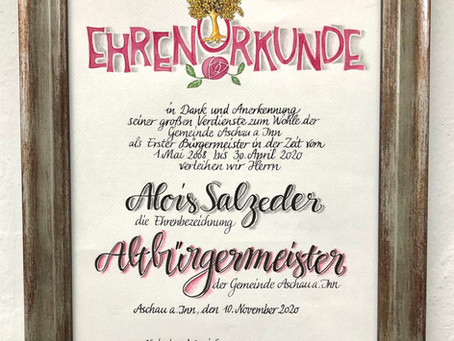 EHRENURKUNDE
in Dank und Anerkennung
seiner großen Verdienste zum Wohle der
Gemeinde Aschau a Inn
als Erster Bürgermeister in der Zeit vom
1.Mai 2008 bis 30.April 2020
verleihen wir Herrn
Alois Salzeder
die Ehrenbezeichnung
Altbürgermeister
der Gemeinde Aschau a.Inn
Aschau a.Inn, den 10.November 2020